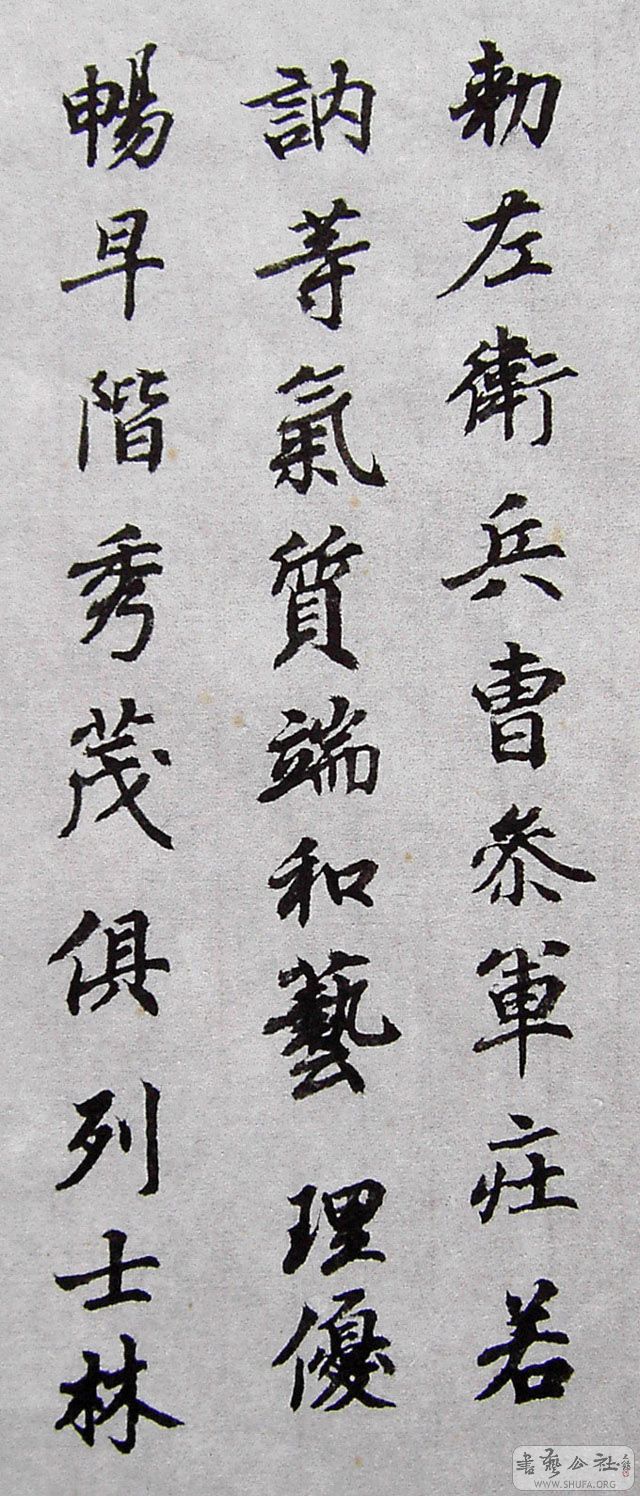 勅左衛兵曹叅軍莊若
訥等氣質端和藝理優
暢早階秀茂俱列士林
書藝公社
WWW.SHUFA.ORG